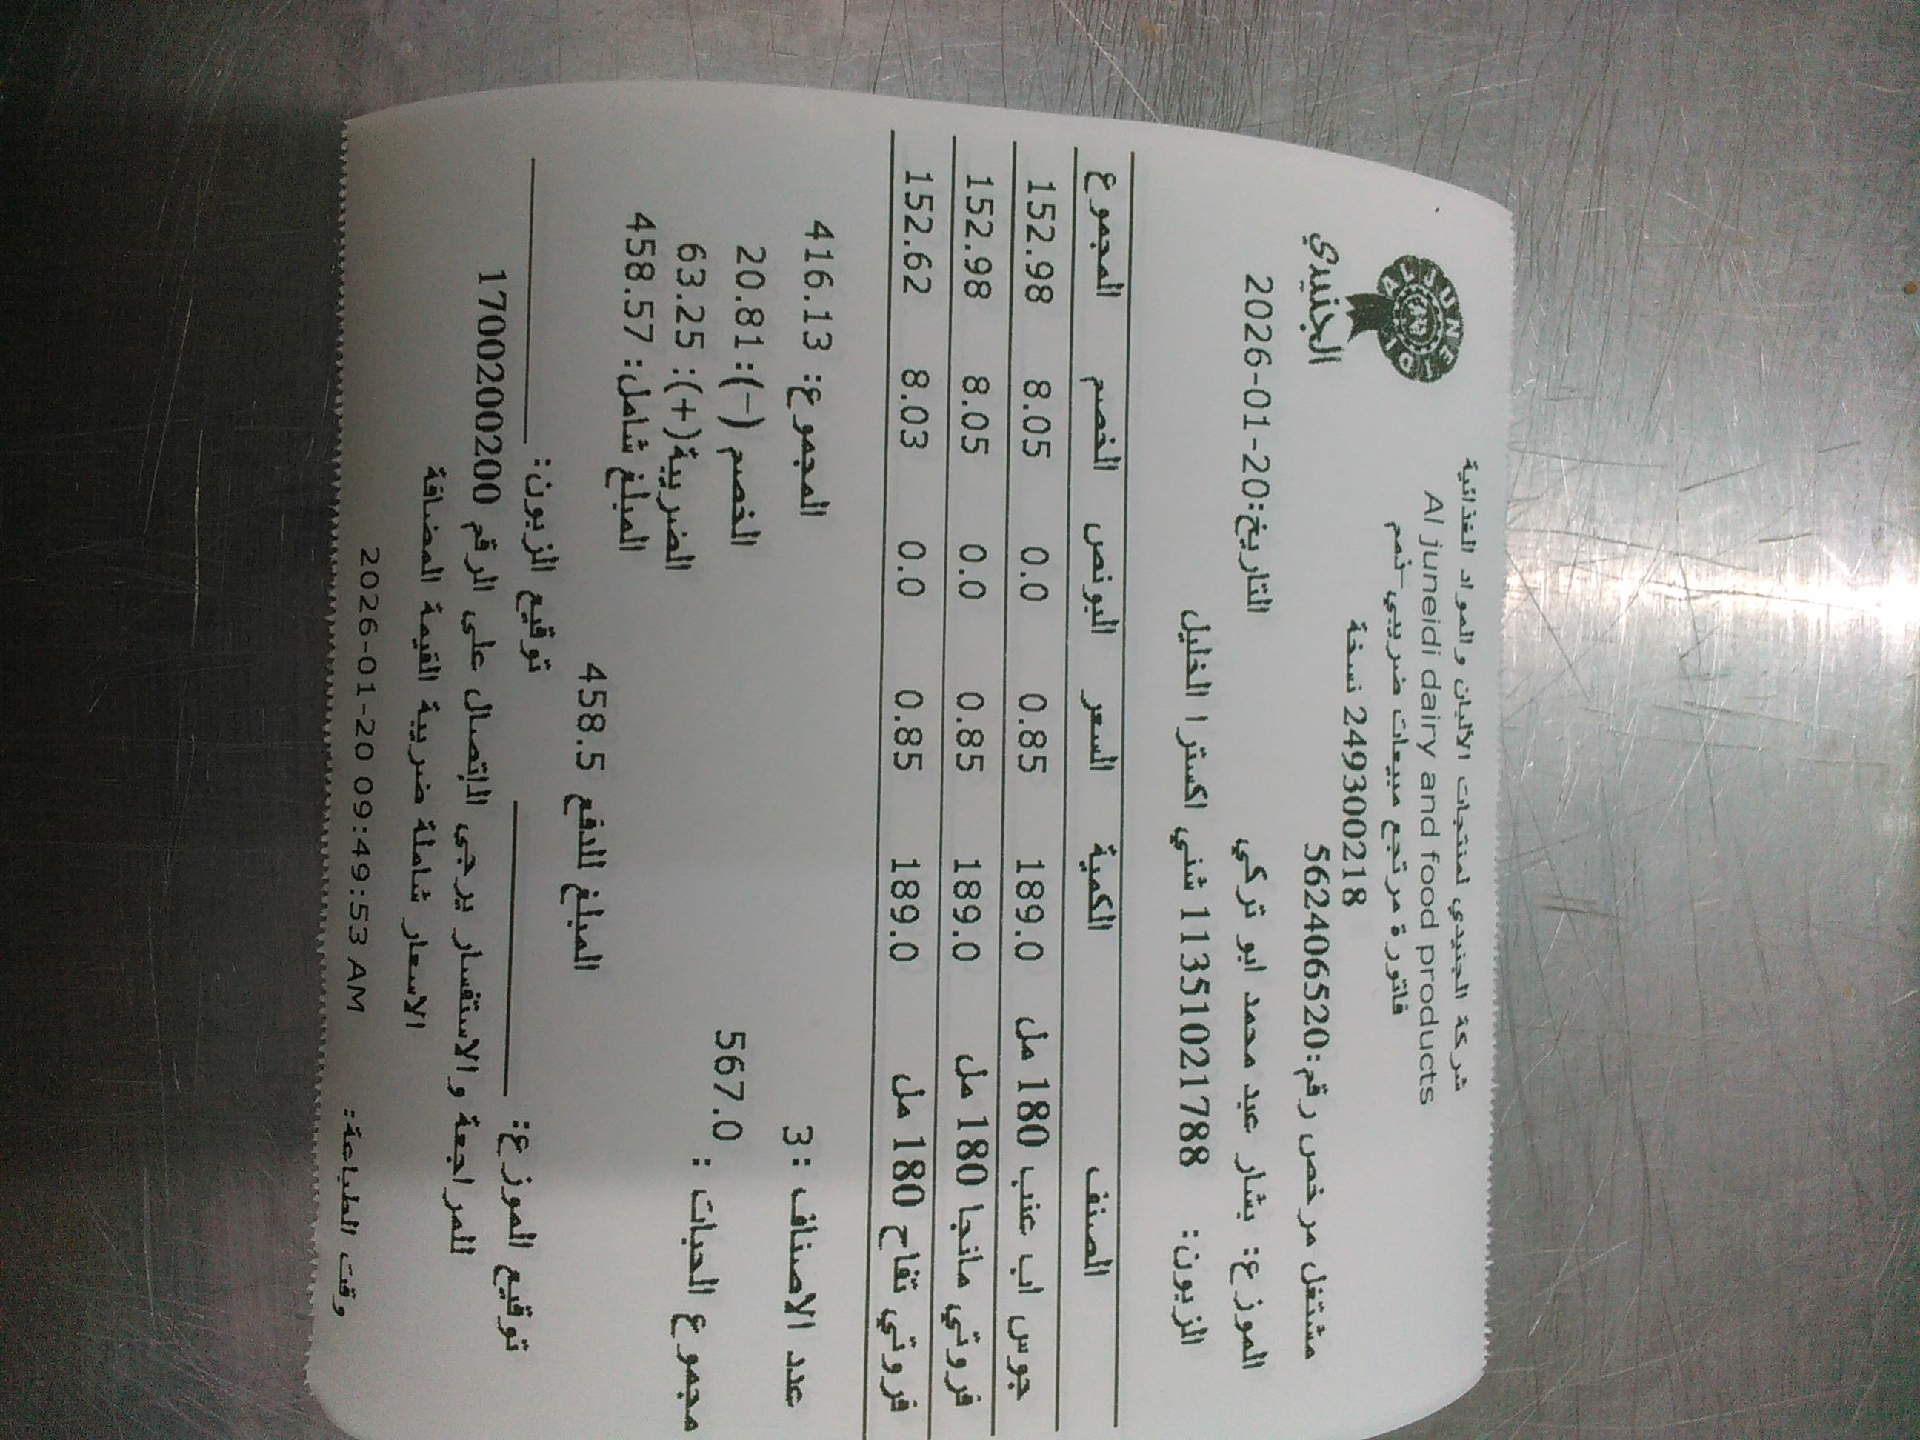 شركة الجنيدي لمنتجات الألبان والمواد الغذائية
Al juneidi dairy and food products
فاتورة مرتجع مبيعات ضريبي ذمم
249300218 نسخة
الجنيدي
مشتغل مرخص رقم:562406520
الموزع: بشار عيد محمد ابو تركي التاريخ:2026-01-20
الزبون: 11351021788 شني اكسترا الخليل
الصنف الكمية السعر البونص الخصم المجموع
جوس اب عنب 180 مل 189.0 0.85 0.0 8.05 152.98
فروتي مانجا 180 مل 189.0 0.85 0.0 8.05 152.98
فروتي تفاح 180 مل 189.0 0.85 0.0 8.03 152.62
عدد الاصناف : 3 المجموع: 416.13
مجموع الحبات : 567.0 الخصم (-): 20.81
الضريبة(+): 63.25
المبلغ شامل: 458.57
المبلغ للدفع 458.5
توقيع الموزع: توقيع الزبون:
للمراجعة والاستفسار يرجى الإتصال على الرقم 1700200200
الاسعار شاملة ضريبة القيمة المضافة
وقت الطباعة: 2026-01-20 09:49:53 AM